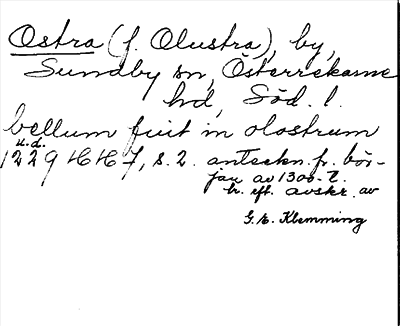 Ostra (f. Olustra), by,
Sundby sn, Österrekarne
hd, Söd. l.
bellum fuit in olostrum
u.d.
1229 HH 7, s. 2. anteckn. fr. bör-
jan av 1300-t.
br. eft. avskr. av
G. E. Klemming